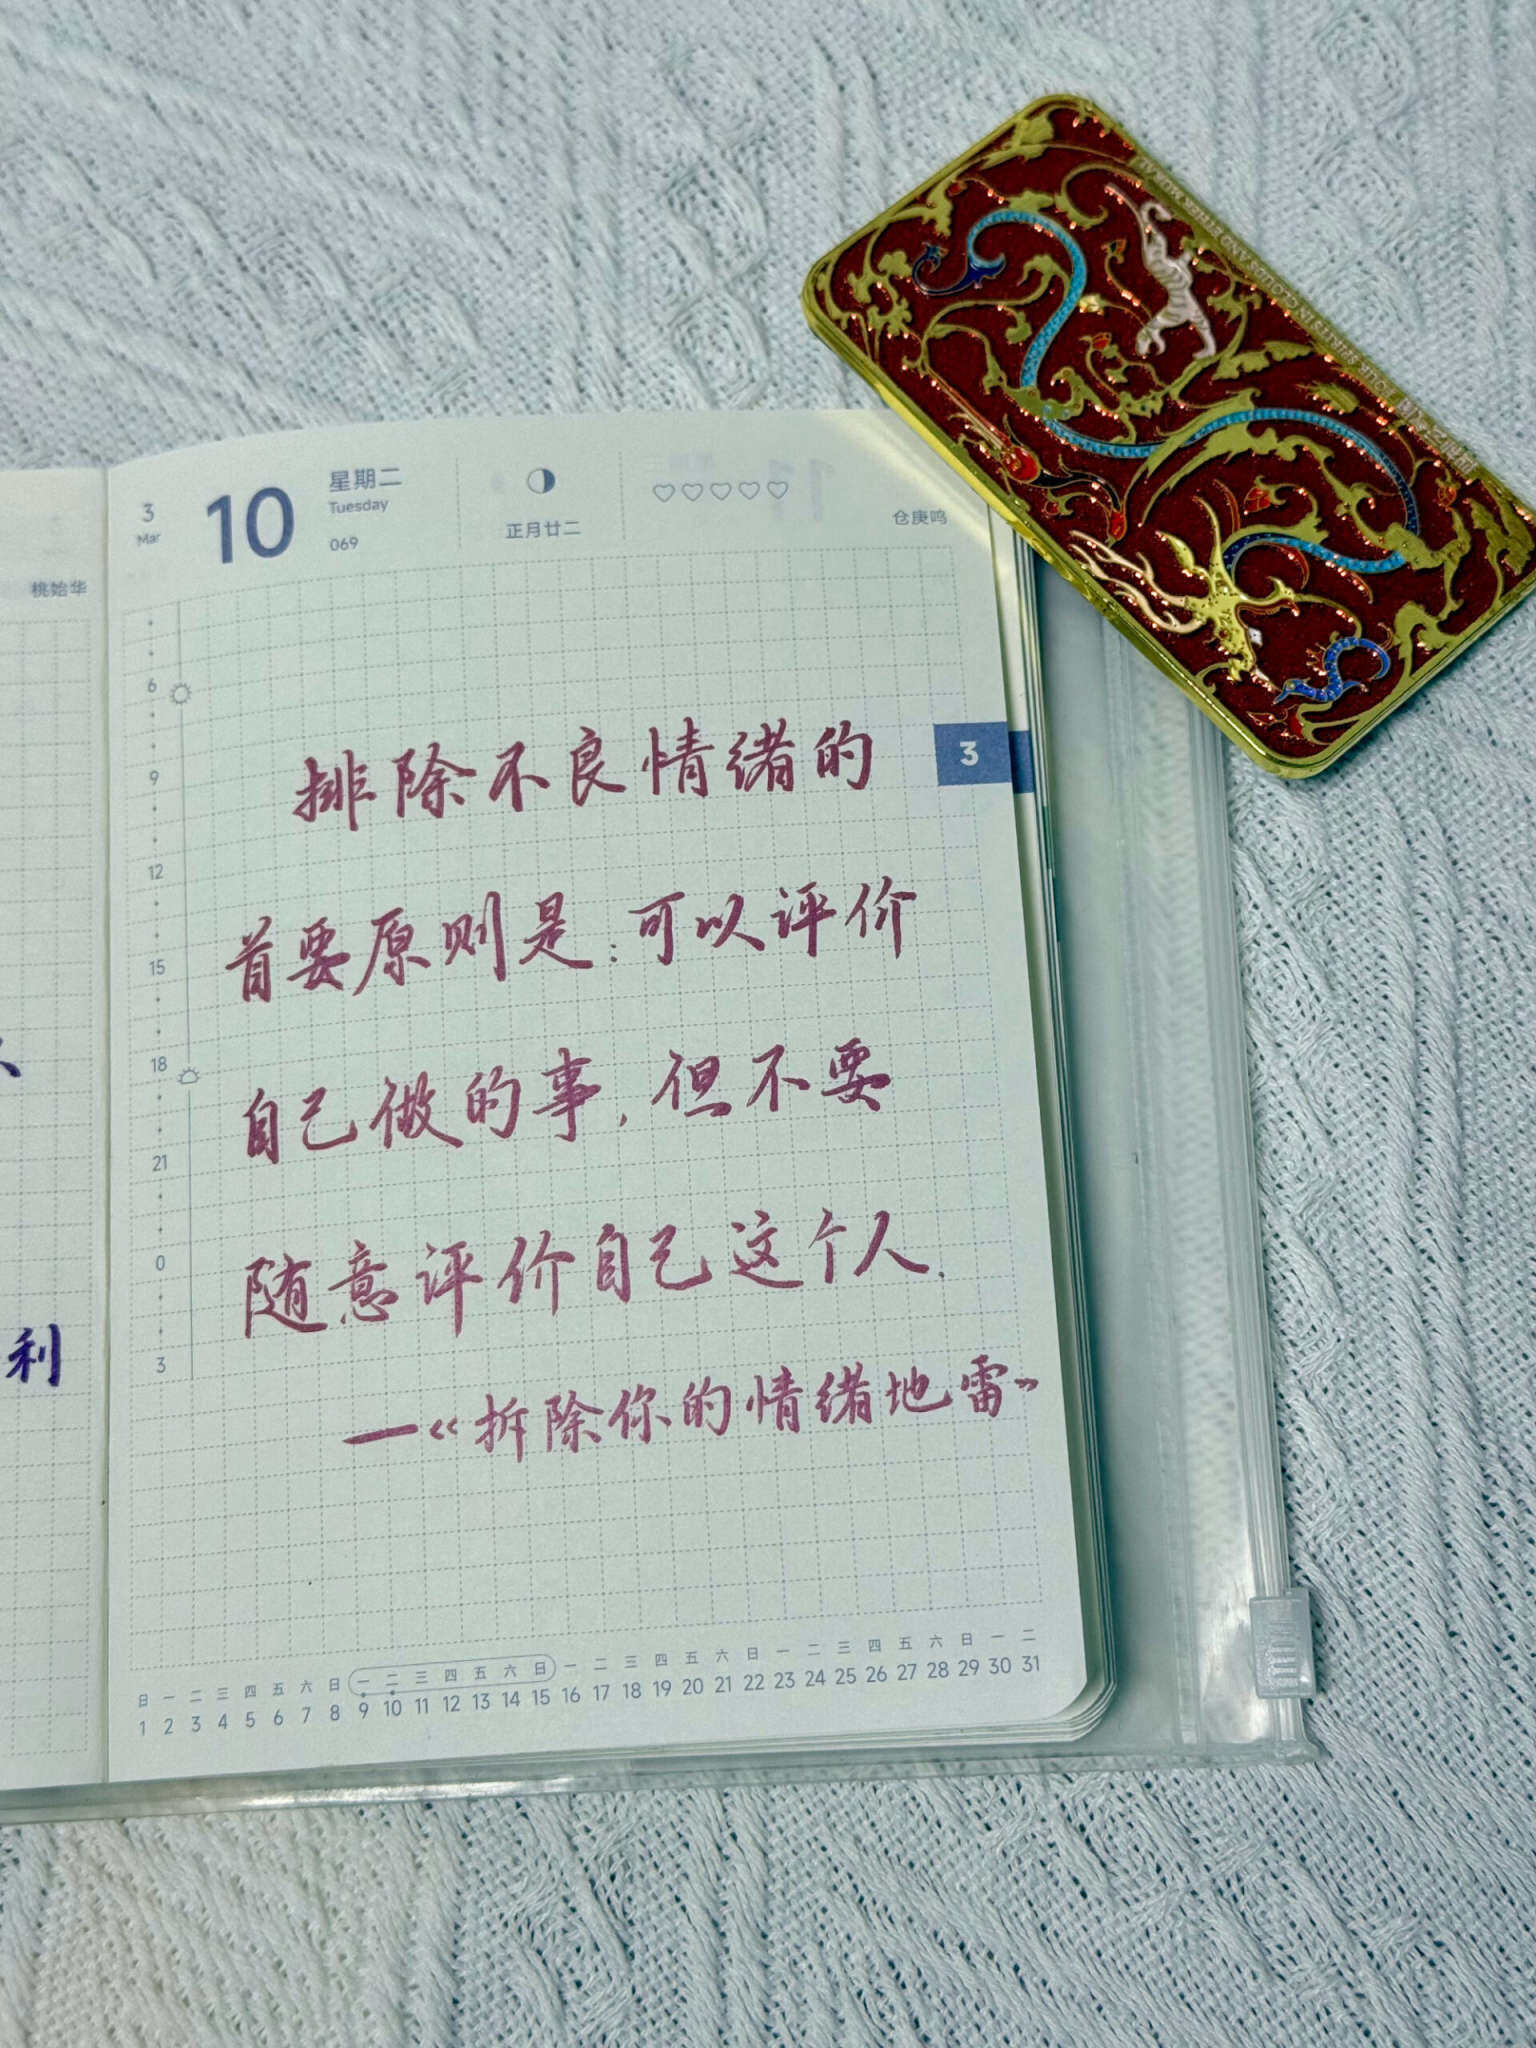 桃始华
利
3
Mar
10
星期二
Tuesday
069
正月廿二
仓庚鸣
6
9
12
15
18
21
0
3
3
排除不良情绪的
首要原则是：可以评价
自己做的事，但不要
随意评价自己这个人.
—《拆除你的情绪地雷》
日 一 二 三 四 五 六 日 一 二 三 四 五 六 日 一 二 三 四 五 六 日 一 二 三 四 五 六 日 一 二
1 2 3 4 5 6 7 8 9 10 11 12 13 14 15 16 17 18 19 20 21 22 23 24 25 26 27 28 29 30 31
FOUR SPIRITS IN CLOUDS AND ETHER